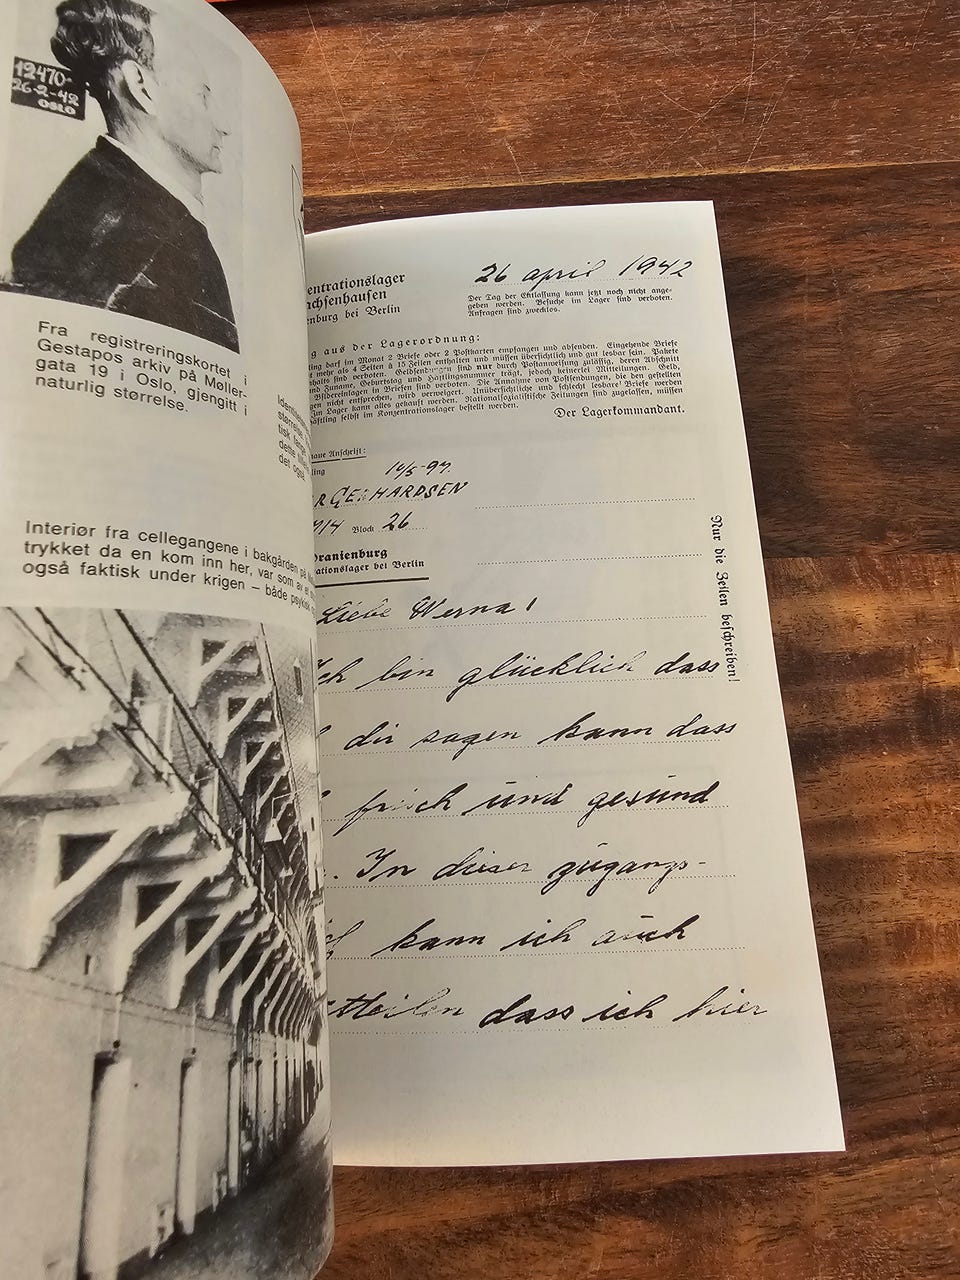 12470-
26-2-42
OSLO
Fra registreringskortet i
Gestapos arkiv på Møller-
gata 19 i Oslo, gjengitt i
naturlig størrelse.
Interiør fra cellegangene i bakgården på
trykket da en kom inn her, var som av
også faktisk under krigen – både psykisk
tisk
dette
det også
entrationslager
achsenhausen
enburg bei Berlin
26 april 1942
Der Tag der Entlassung kann jetzt noch nicht ange-
geben werden. Besuche im Lager sind verboten.
Anfragen sind zwecklos.
g aus der Lagerordnung:
ling darf im Monat 2 Briefe oder 2 Postkarten empfangen und absenden. Eingehende Briefe
t mehr als 4 Seiten à 15 Zeilen enthalten und müssen übersichtlich und gut lesbar sein. Pakete
nhalts sind verboten. Geldsendungen sind nur durch Postanweisung zulässig, deren Abschnitt
und Zuname, Geburtstag und Häftlingsnummer trägt, jedoch keinerlei Mitteilungen. Geld,
Bildereinlagen in Briefen sind verboten. Die Annahme von Postsendungen, die den gestellten
gen nicht entsprechen, wird verweigert. Unübersichtliche und schlecht lesbare Briefe werden
Im Lager kann alles gekauft werden. Nationalsozialistische Zeitungen sind zugelassen, müssen
häftling selbst im Konzentrationslager bestellt werden.
Der Lagerkommandant.
naue Anschrift:
ling
10/5-97.
R GERHARDSEN
914 Block 26
Oranienburg
rationslager bei Berlin
Nur die Zeilen beschreiben!
Liebe Werna!
Ich bin glücklich dass
dir sagen kann dass
frisch und gesund
. In dieser zugangs-
kann ich auch
tteilen dass ich hier